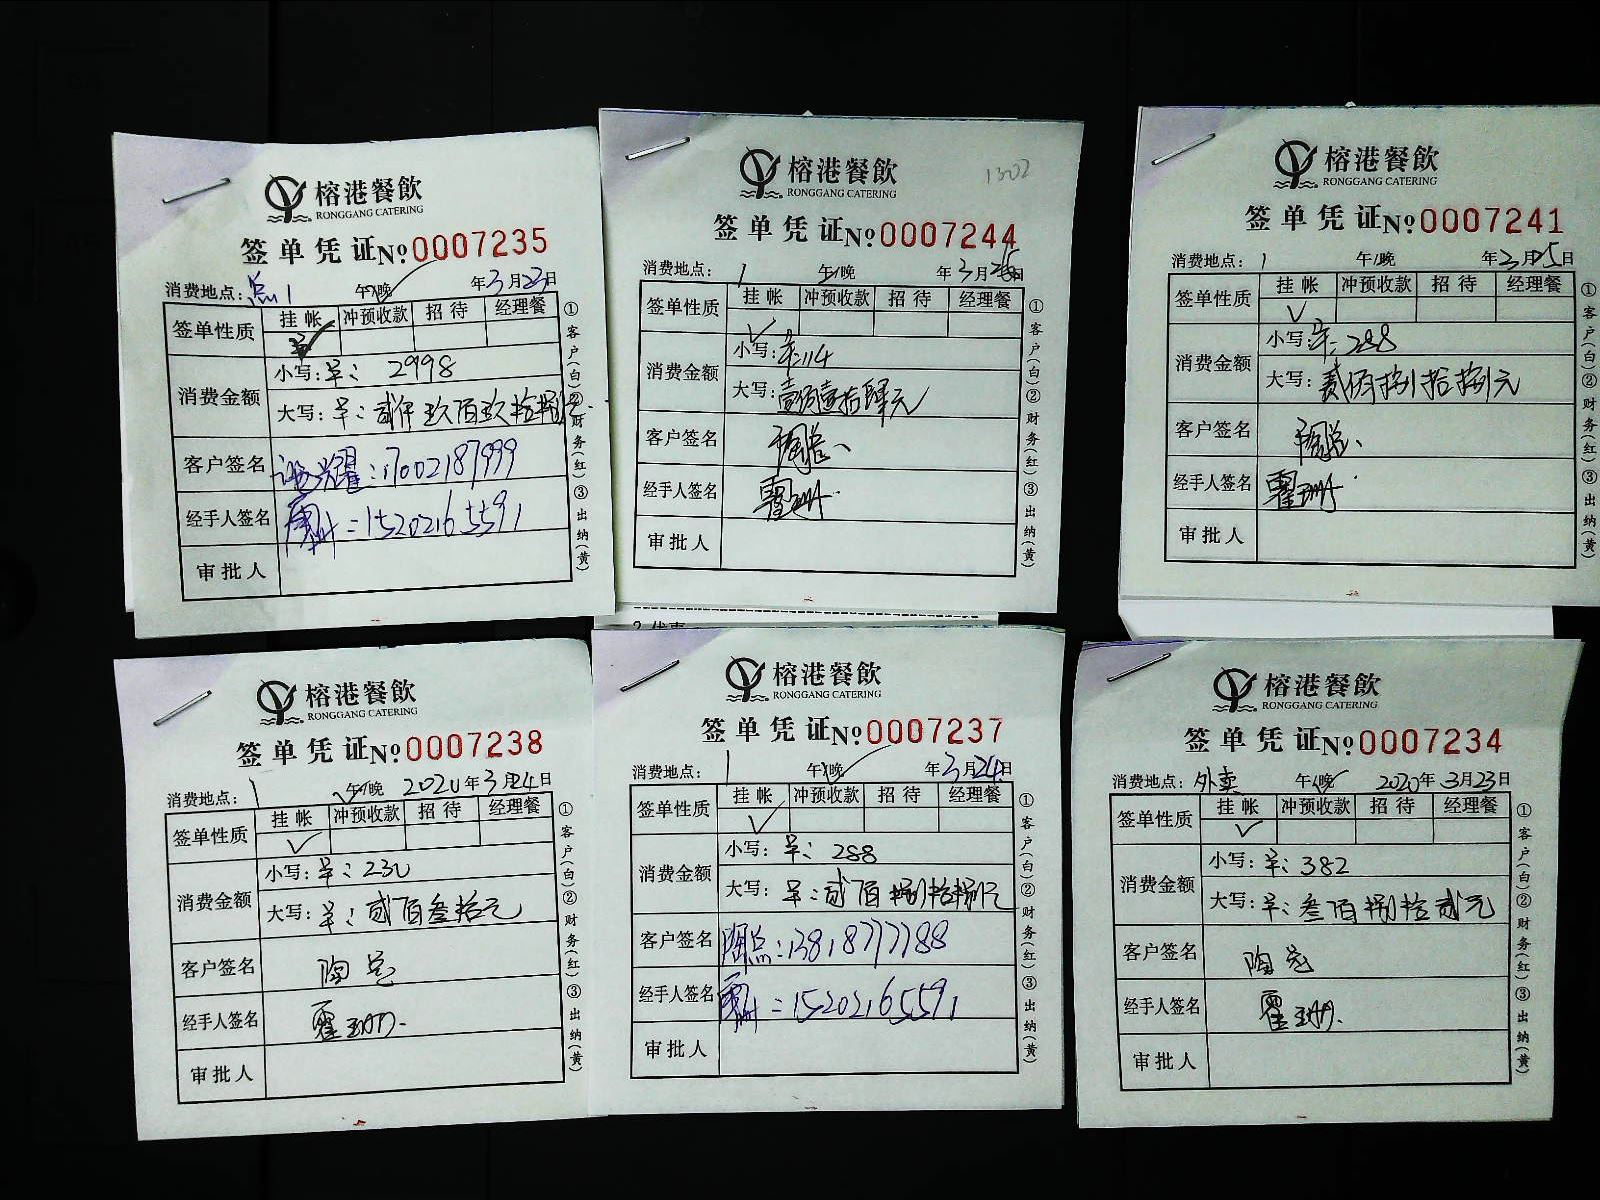 榕港餐飲
RONGGANG CATERING
签单凭证No.0007235
消费地点: 1 午/晚 年3月23日
签单性质 挂帐 冲预收款 招待 经理餐
小写:单: 2998
消费金额
大写:单:贰仟玖佰玖拾捌元
客户签名 :17002187999
经手人签名 霍珊=15202165591
审批人
①客户(白)②财务(红)③出纳(黄)
榕港餐飲
RONGGANG CATERING
1302
签单凭证No.0007244
消费地点: 1 午/晚 年3月 日
签单性质 挂帐 冲预收款 招待 经理餐
小写:单:114
消费金额
大写:壹佰壹拾肆元
客户签名 陶总
经手人签名 霍珊
审批人
①客户(白)②财务(红)③出纳(黄)
2.优惠
榕港餐飲
RONGGANG CATERING
签单凭证No.0007241
消费地点: 1 午/晚 年3月 5日
签单性质 挂帐 冲预收款 招待 经理餐
小写:单:288
消费金额
大写:贰佰捌拾捌元
客户签名 陶总
经手人签名 霍珊
审批人
①客户(白)②财务(红)③出纳(黄)
榕港餐飲
RONGGANG CATERING
签单凭证No.0007238
消费地点: 1 午/晚 2020年3月24日
签单性质 挂帐 冲预收款 招待 经理餐
小写:单:230
消费金额
大写:单:贰佰叁拾元
客户签名 陶总
经手人签名 霍珊
审批人
①客户(白)②财务(红)③出纳(黄)
榕港餐飲
RONGGANG CATERING
签单凭证No.0007237
消费地点: 1 午/晚 年3月24日
签单性质 挂帐 冲预收款 招待 经理餐
小写:单:288
消费金额
大写:单:贰佰捌拾捌元
客户签名 陶总:13818777188
经手人签名 霍珊=15202165591
审批人
①客户(白)②财务(红)③出纳(黄)
榕港餐飲
RONGGANG CATERING
签单凭证No.0007234
消费地点:外卖 午/晚 2020年3月23日
签单性质 挂帐 冲预收款 招待 经理餐
小写:单:382
消费金额
大写:单:叁佰捌拾贰元
客户签名 陶总
经手人签名 霍珊
审批人
①客户(白)②财务(红)③出纳(黄)